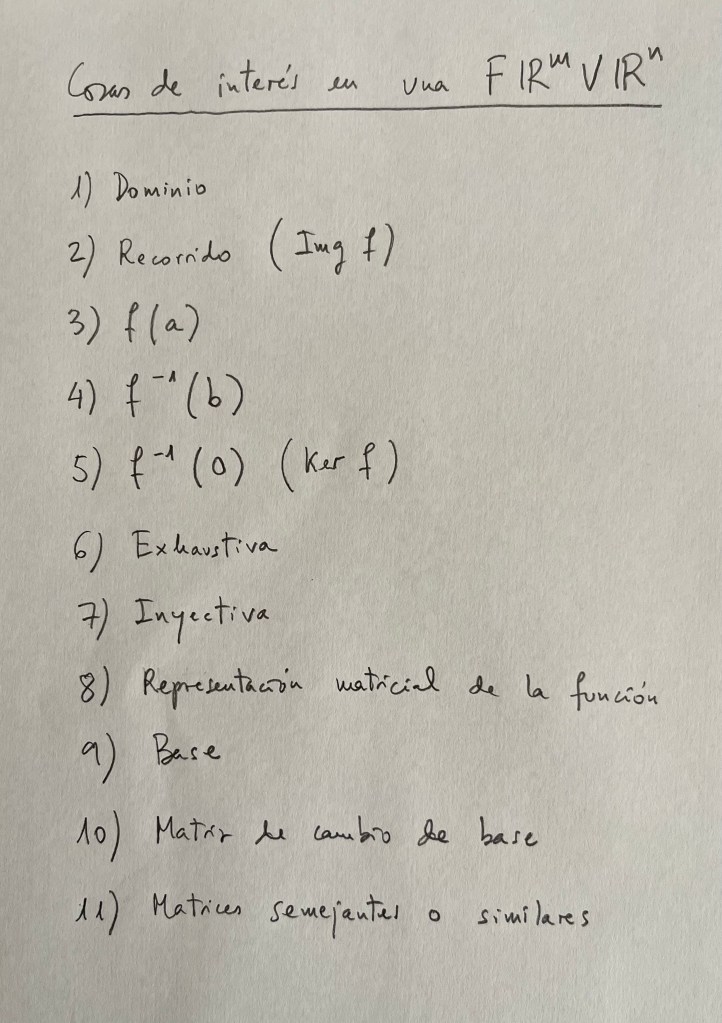 Cosas de interés en una F ℝᵐ V ℝⁿ
1) Dominio
2) Recorrido (Img f)
3) f(a)
4) f⁻¹(b)
5) f⁻¹(0) (Ker f)
6) Exhaustiva
7) Inyectiva
8) Representación matricial de la función
9) Base
10) Matriz de cambio de base
11) Matrices semejantes o similares